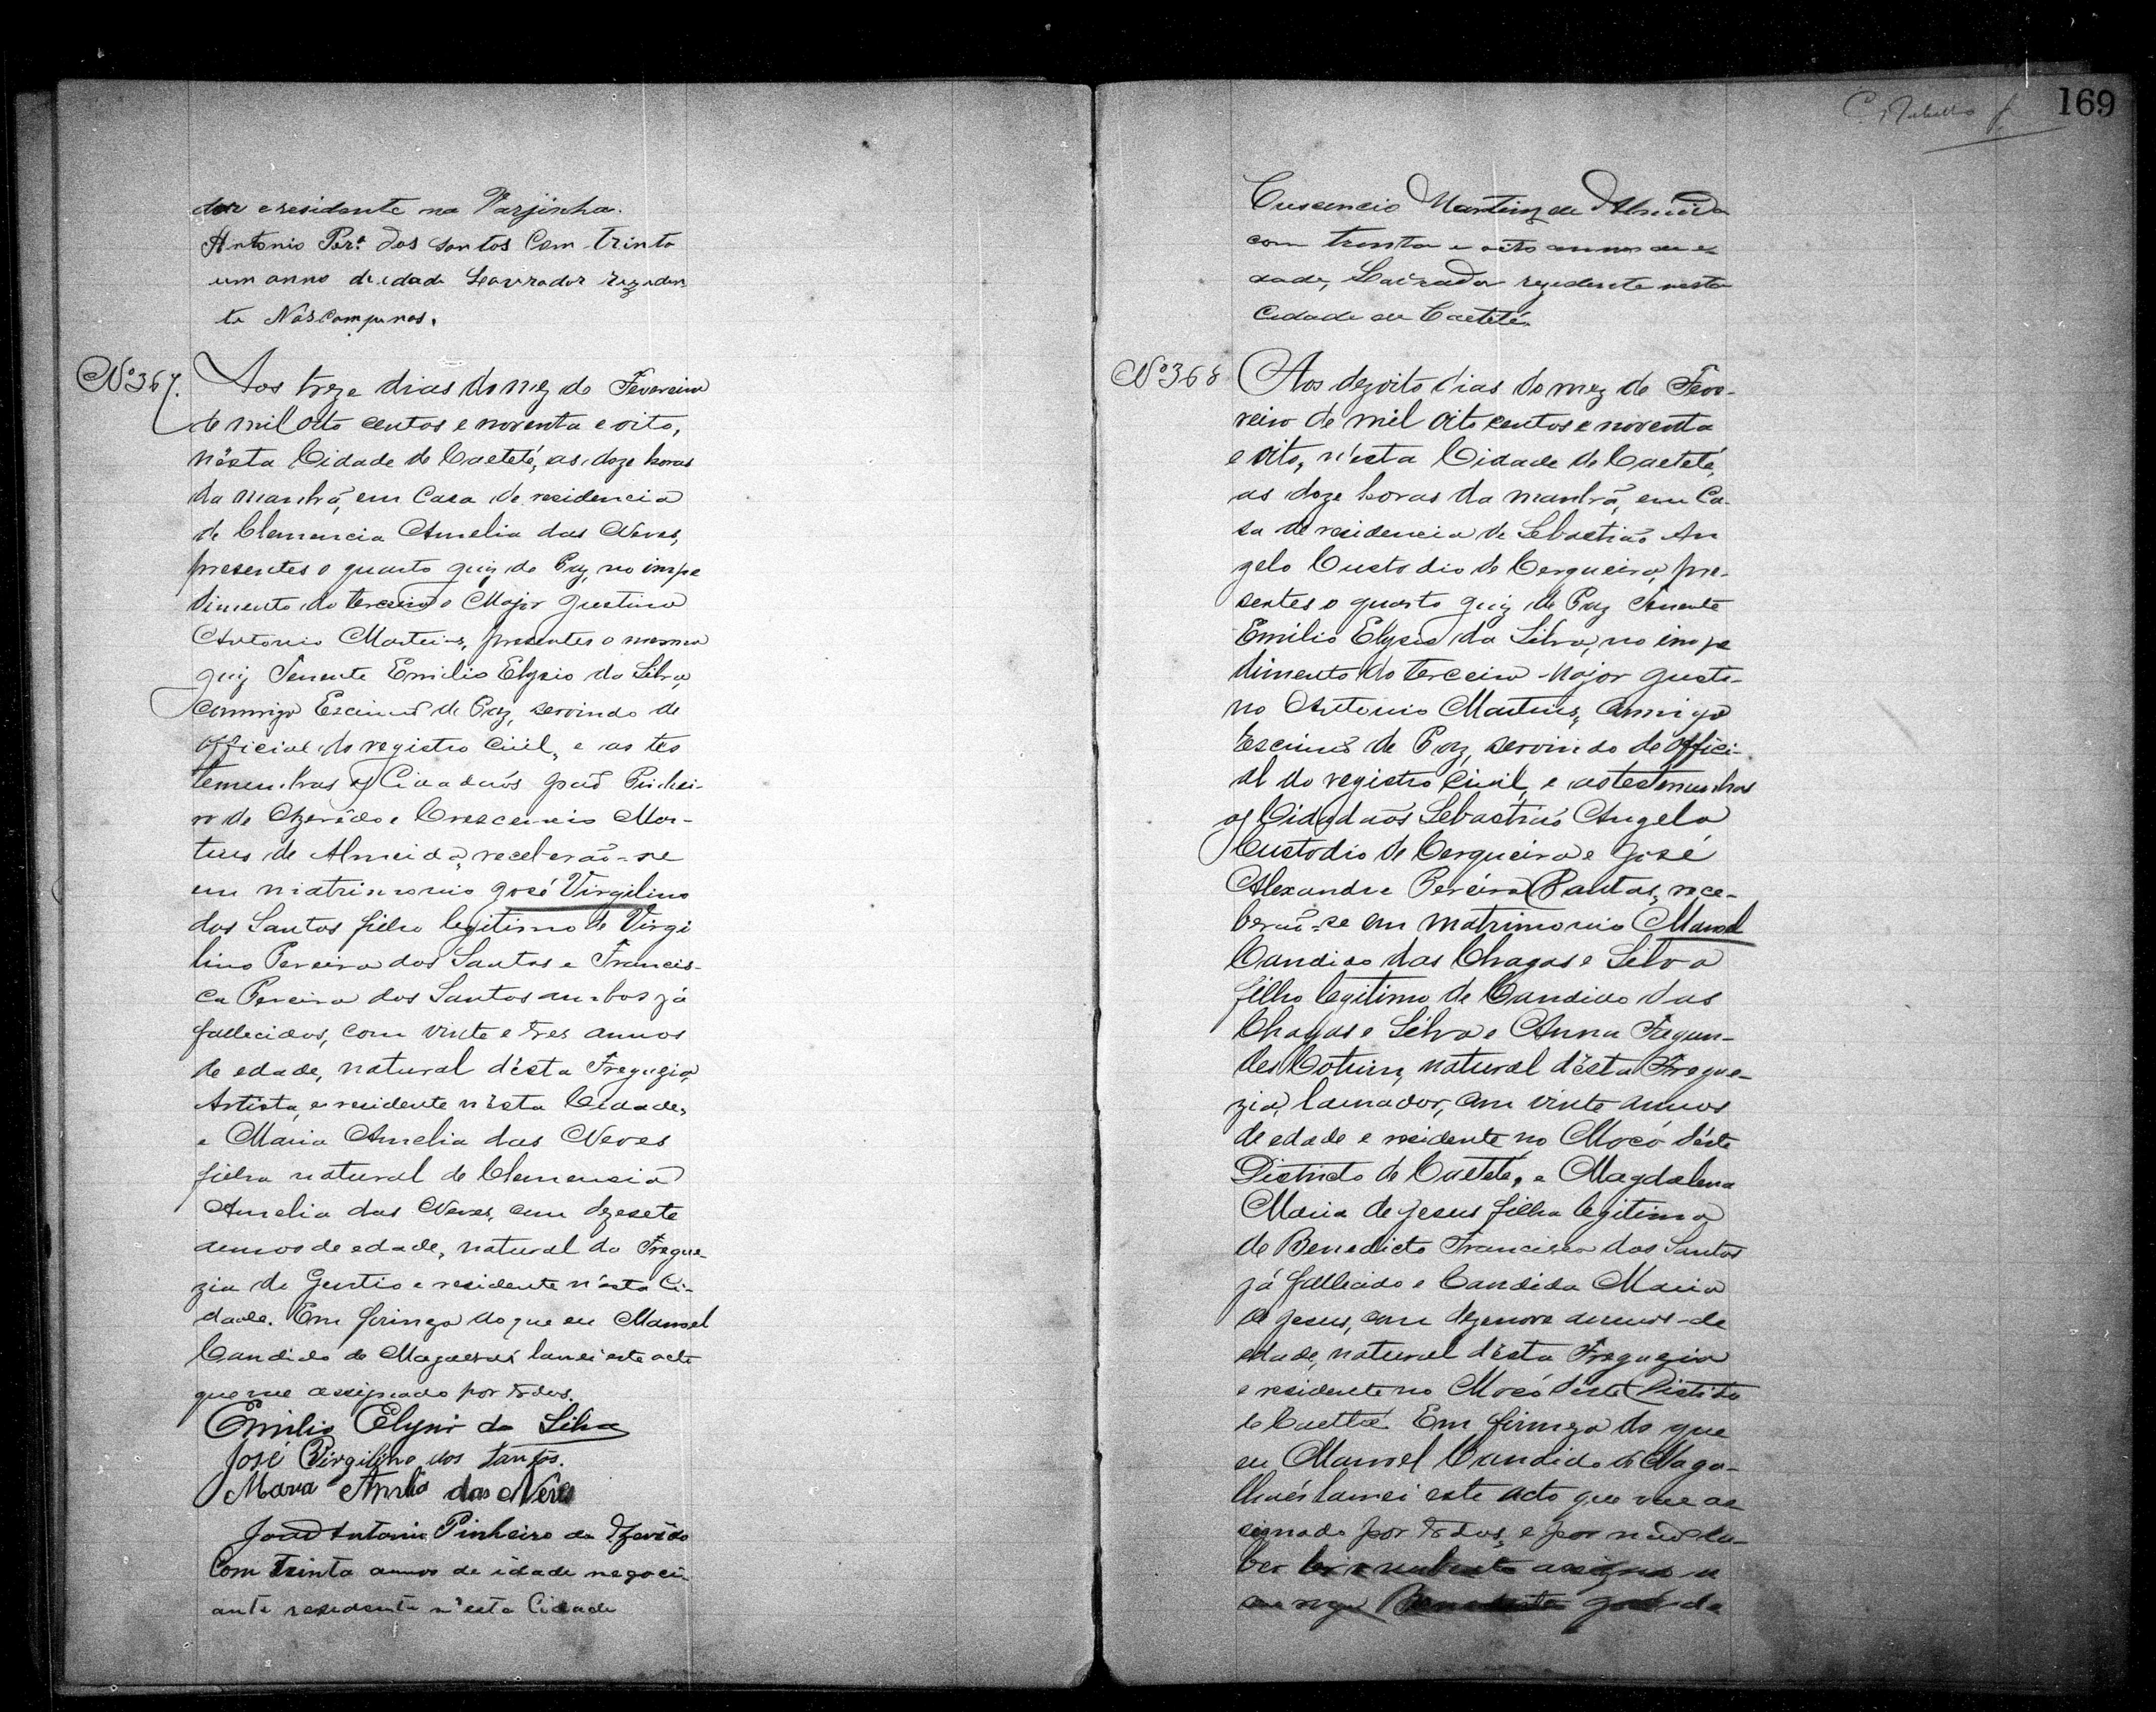 dor e residente na Varjinha.
Antonio Per.ª dos Santos Com trinta
um anno de idade Lavrador rezeden
te Nas Campinas.
Nº 367.
Aos treze dias do mez de Fevereiro
de mil oito centos e noventa e oito,
nésta Cidade de Caeteté, as doze horas
da manhã, em Casa de residencia
de Clemencia Amelia das Neves,
presentes o quarto juiz de Paz, no impe
dimento do terceiro o Major Justino
Antonio Martins, presentes o mesmo
juiz Tenente Emilio Elysio da Silva,
Commigo Escrivão de Paz, servindo de
Official do registro Civil, e as tes
temunhas os Cidadãos João Pinhei-
ro de Azevêdo e Crescencio Mar-
tins de Almeida, receberão-se
em matrimonio José Virgilino
dos Santos filho legitimo de Virgi
lino Pereira dos Santos e Francis-
ca Pereira dos Santos ambos já
fallecidos, com vinte e tres annos
de edade, natural d'ésta Freguezia,
Artista, e residente n'ésta Cidade,
e Maria Amelia das Neves
filha natural de Clemencia
Amelia das Neves, com dezesete
annos de edade, natural da Fregue-
zia de Gentio e residente n'ésta Ci-
dade. Em firmeza do que eu Manoel
Candido de Magalhães lavrei este acto
que vae assignado por todos.
Emilio Elysio da Silva
José Virgilino dos Santos.
Maria Amelia das Neves
João Antonio Pinheiro de Azevêdo
Com trinta annos de idade negoci
ante resedente n'esta Cidade
169
Crescencio Martins de Almeida
com trinta e oito annos de e-
dade, Lavrador rezedente nesta
Cidade de Caeteté.
Nº 368
Aos dezoito dias do mez de Feve-
reiro de mil oito centos e noventa
e oito, n'ésta Cidade de Caeteté,
as doze horas da manhã, em Ca-
sa de residencia de Sebastião An
gelo Custodio de Cerqueira, pre-
sentes o quarto juiz de Paz Tenente
Emilio Elysio da Silva, no impe
dimento do terceiro Major Justi-
no Antonio Martins, Commigo
Escrivão de Paz, servindo de Offici-
al do registro Civil, e as testemunhas
os Cidadãos Sebastião Angelo
Custodio de Cerqueira e José
Alexandre Pereira Dantas, rece-
berão-se em matrimonio Manoel
Candido das Chagas e Silva
filho legitimo de Candido das
Chagas e Silva e Anna Fagun-
des Cotrim, natural d'ésta Fregue-
zia, lavrador, com vinte annos
de edade e residente no Mocó déste
Districto de Caeteté, e Magdalena
Maria de Jesus filha legitima
de Benedicto Francisco dos Santos
já fallecido e Candida Maria
de Jesus, com dezenove annos de
edade, natural d'ésta Freguezia
e residente no Mocó déste Districto
de Caeteté. Em firmeza do que
eu Manoel Candido de Maga-
lhães lavrei este acto que vae as
signado por todos, e por não sa-
ber
seu rogo José da